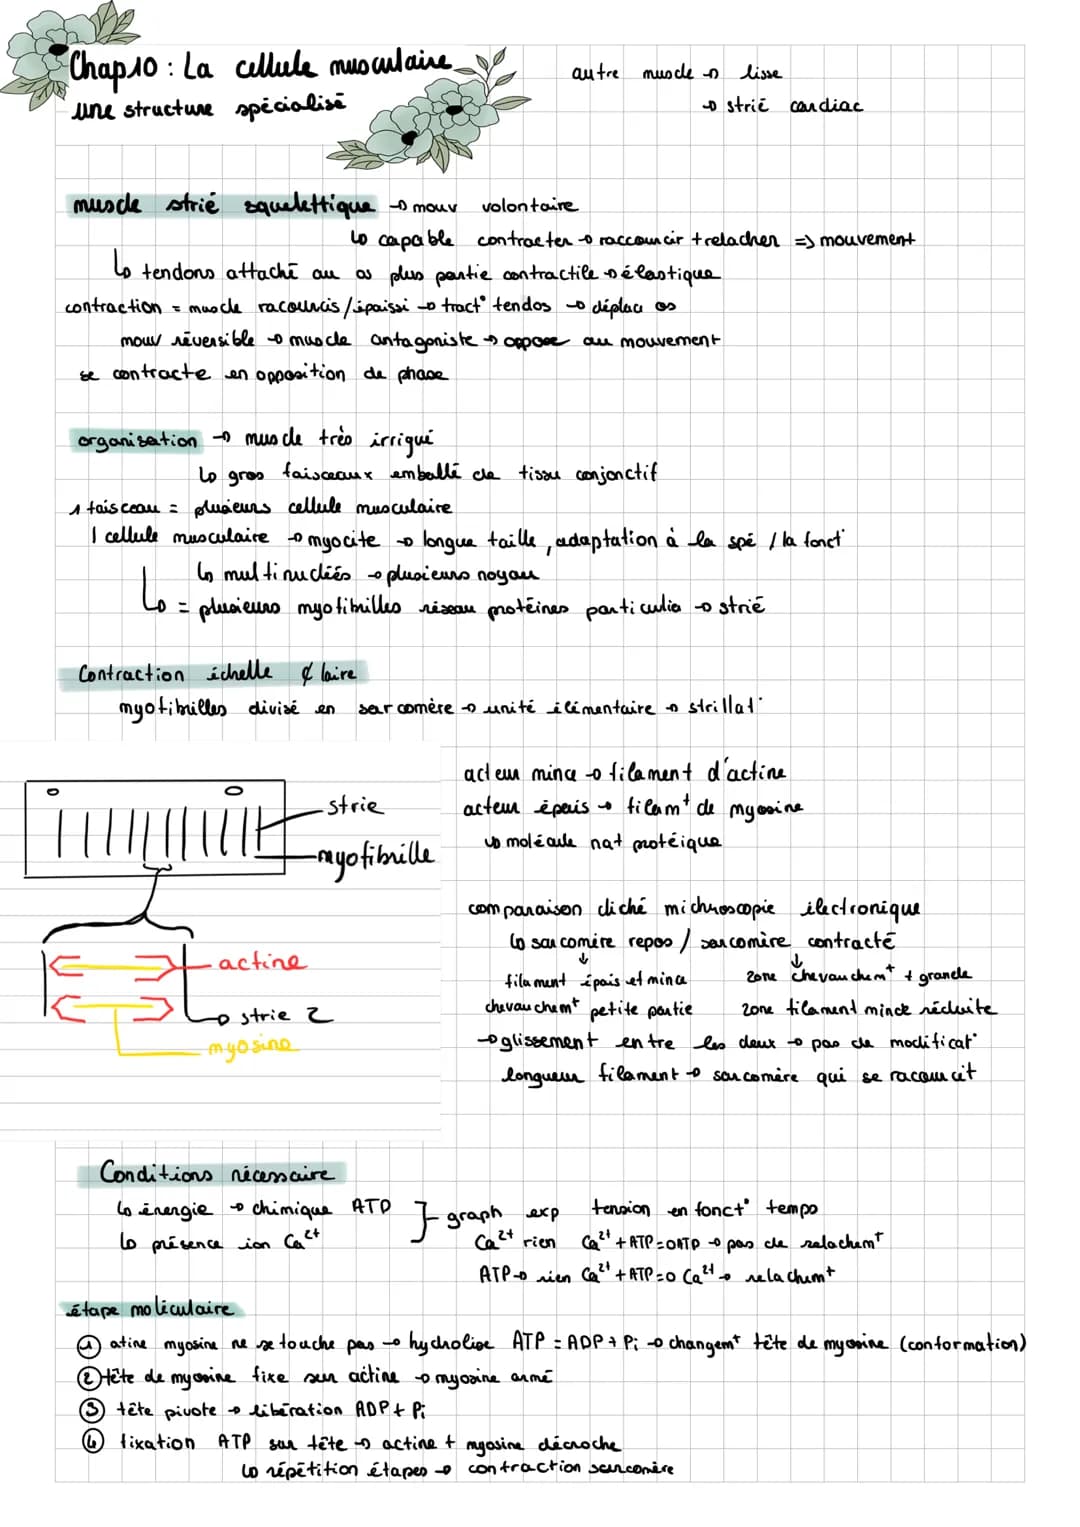 Chap 10 : La cellule musculaire
une structure spécialisé
autre muscle → lisse
→ strié cardiac
muscle strié squelettique → mouv volontaire
↳ capable contracter → raccourcir + relacher => mouvement
↳ tendons attaché au os plus partie contractile → élastique
contraction = muscle racourcis / épaissi → tract° tendos → déplace os
mouv réversible → muscle antagoniste → oppose au mouvement
se contracte en opposition de phase
organisation → muscle très irrigué
↳ gros faisceaux emballé de tissu conjonctif
1 faisceau = plusieurs cellule musculaire
1 cellule musculaire → myocite → longue taille, adaptation à la spé / la fonct°
↳ multinucléés → plusieurs noyau
↳ = plusieurs myofibrilles réseau protéines particulia → strié
Contraction échelle ¢ laire
myofibrilles divisé en sarcomère → unité élémentaire → strillat°
strie
myofibrille
actine
strie Z
myosine
acteur mince → filament d'actine
acteur épais → filamt de myosine
↳ molécule nat protéique
comparaison cliché michroscopie électronique
↳ sarcomère repos / sarcomère contracté
filament épais et mince
chevauchemt petite partie
zone chevauchemt + grande
zone filament mince réduite
→ glissement entre les deux → pas de modificat°
longueur filament → sarcomère qui se racourcit
Conditions nécessaire
↳ énergie → chimique ATP
↳ présence ion Ca²⁺
} graph exp tension en fonct° temps
Ca²⁺ rien Ca²⁺ + ATP = 0ATP → pas de relachemt
ATP → rien Ca²⁺ + ATP = 0 Ca²⁺ → relachemt
étape moléculaire
① atine myosine ne se touche pas → hydrolise ATP = ADP + Pi → changemt tête de myosine (conformation)
② tête de myosine fixe sur actine → myosine armé
③ tête pivote → libération ADP + Pi
④ fixation ATP sur tête → actine + myosine décroche
↳ répétition étapes → contraction sarcomère